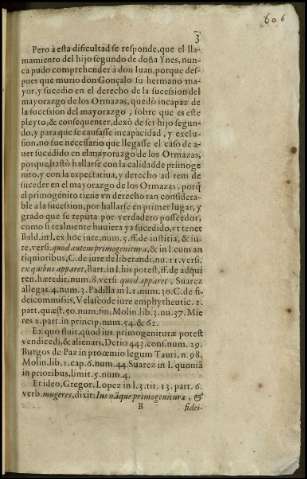 606
3
Pero à esta dificultad se responde, que el lla-
mamiento del hijo segundo de doña Ynes, nun-
ca pudo comprehender à don Iuan, porque des-
pues que murio don Gonçalo su hermano ma-
yor, y sucedio en el derecho de la sucession del
mayorazgo de los Ormazas, quedò incapaz de
la sucession del mayorazgo, sobre que es este
pleyto, & consequenter, dexò de ser hijo segun-
do, y para que se causasse incapacidad, y exclu-
sion, no fue necessario que llegasse el caso de a-
uer sucedido en el mayorazgo de los Ormazas,
porque bastò hallarse con la calidad de primoge
nito, y con la expectatiua, y derecho ad rem de
suceder en el mayorazgo de los Ormazas, porq̃
el primogenito tiene en derecho tan considera-
ble à la sucession, por hallarse en primer lugar, y
grado que se reputa por verdadero posseedor,
como si realmente huuiera ya sucedido, vt tenet
Bald. in l. ex hoc iure, num. 5. ff. de iustitia, & iu-
re, versi. quod autem primogenitura, & in l. cum an
tiquioribus, C. de iure deliberandi, nu. 11. versi.
ex quibus apparet, Bart. in l. his potest, ff. de adqui
ren. hæredit. num. 8. versi. quod apparet, Suarez
allegat. 4. num. 3. Padilla in l. 1. num. 20. C. de fi-
deicommissis, Velasco de iure emphyteutic. 2.
part. quæst. 50. num. fin. Molin. lib. 3. nu. 37. Mie
res 2. part. in princip. num. 54. & 62.
Ex quo fluit quod ius primogenituræ potest
vendi, cedi, & alienari, Decio 445. cons. num. 29.
Burgos de Paz in proœmio legum Tauri, n. 98.
Molin. lib. 1. cap. 6. num. 44. Suarez in l. quoniã
in prioribus, limit. 5. num. 4.
Et ideo, Gregor. Lopez in l. 3. tit. 13. part. 6.
verb. mugeres, dixit: Ius náque primogenituræ, &
B
fidei-